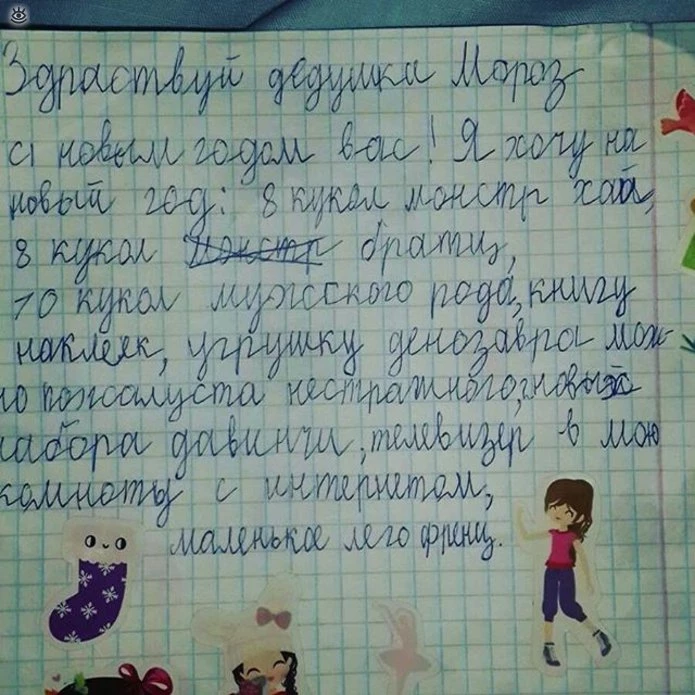 Здраствуй дедушка Мороз
с новым годом вас! Я хочу на
новый год: 8 кукол монстр хай,
8 кукол монстр братц,
10 кукол мужсского рода, книгу
наклеек, угрушку денозавра мож-
но пожалуста нестрашного,
набора давинчи, телевизер в мою
комноты с интернетом,
маленькое лего френц.